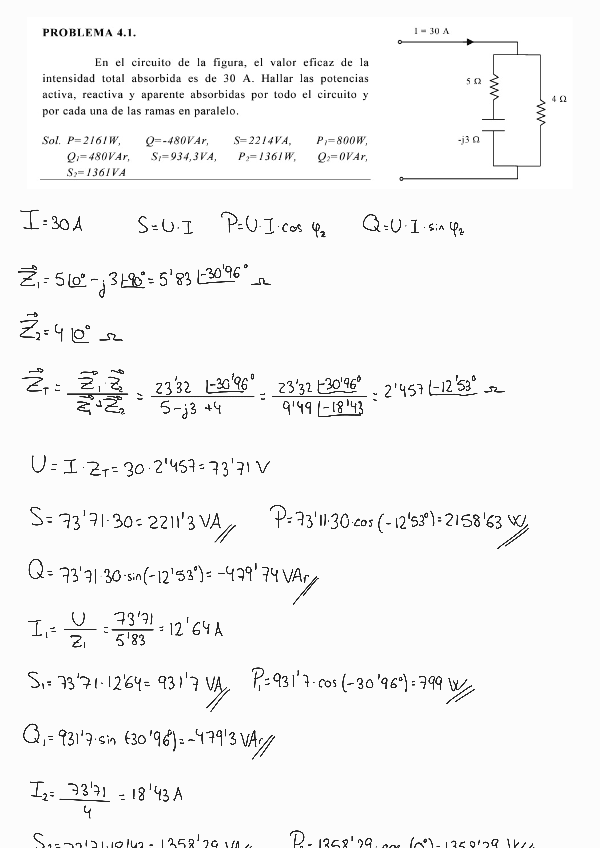 PROBLEMA 4.1.
En el circuito de la figura, el valor eficaz de la
intensidad total absorbida es de 30 A. Hallar las potencias
activa, reactiva y aparente absorbidas por todo el circuito y
por cada una de las ramas en paralelo.
Sol. P=2161W, Q=-480VAr, S=2214VA, P₁=800W,
Q₁=480VAr, S₁=934,3VA, P₂=1361W, Q₂=0VAr,
S₂=1361VA
I = 30 A
5 Ω
4 Ω
-j3 Ω
I=30A S=U·I P=U·I·cos φ₂ Q=U·I·sin φ₂
Z₁=5∠0°-j3∠-90°=5'83∠-30'96° Ω
Z₂=4∠0° Ω
Z_T = Z₁·Z₂/(Z₁+Z₂) = 23'32∠-30'96°/(5-j3+4) = 23'32∠-30'96°/9'49∠-18'43 = 2'457∠-12'53° Ω
U=I·Z_T=30·2'457=73'71 V
S=73'71·30=2211'3 VA P=73'11·30·cos(-12'53°)=2158'63 W
Q=73'71·30·sin(-12'53°)=-479'74 VAr
I₁=U/Z₁=73'71/5'83=12'64 A
S₁=73'71·12'64=931'7 VA P₁=931'7·cos(-30'96°)=799 W
Q₁=931'7·sin(-30'96°)=-479'3 VAr
I₂=73'71/4=18'43 A
S₂=73'71·18'43=1358'29 VA P₂=1358'29·cos(0°)=1358'29 W